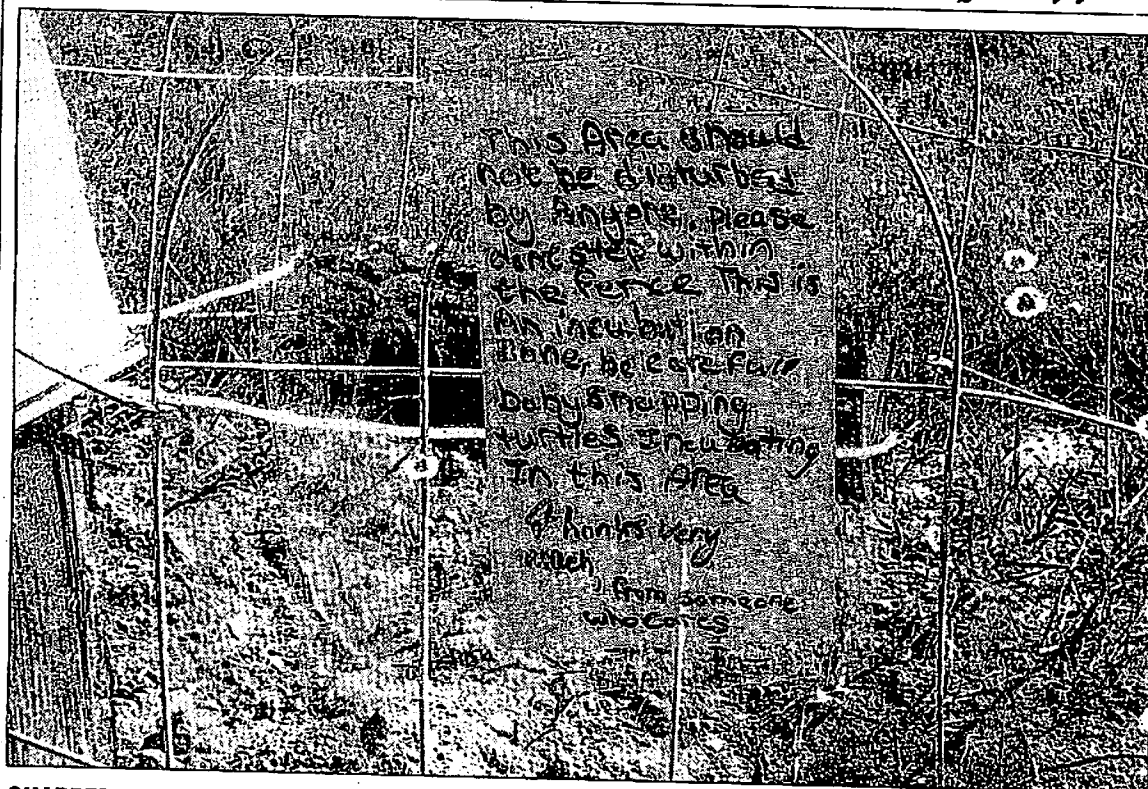 This Area should
not be disturbed
By Anyone, please
dont step within
the fence This is
An incubation
Zone, be carefull
baby snapping
turtles Incubating
In this Area
thanks very
much,
from someone
who cares